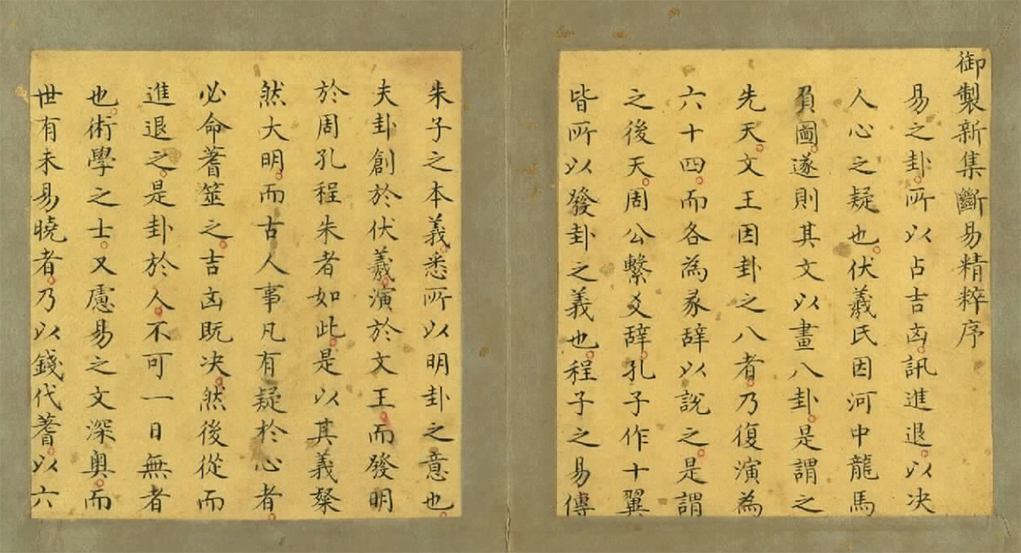 御製新集斷易精粹序
易之卦。所以占吉凶。訊進退。以决
人心之疑也。伏羲氏因河中龍馬
負圖。遂則其文以畫八卦。是謂之
先天。文王因卦之八者。乃復演為
六十四。而各為彖辭以說之。是謂
之後天。周公繫爻辭。孔子作十翼
皆所以發卦之義也。程子之易傳
朱子之本義。悉所以明卦之意也。
夫卦創於伏羲。演於文王。而發明
於周孔程朱者如此。是以其義粲
然大明。而古人事凡有疑於心者。
必命蓍筮之。吉凶既决。然後從而
進退之。是卦於人。不可一日無者
也。術學之士。又慮易之文深奥。而
世有未易曉者。乃以錢代蓍。以六